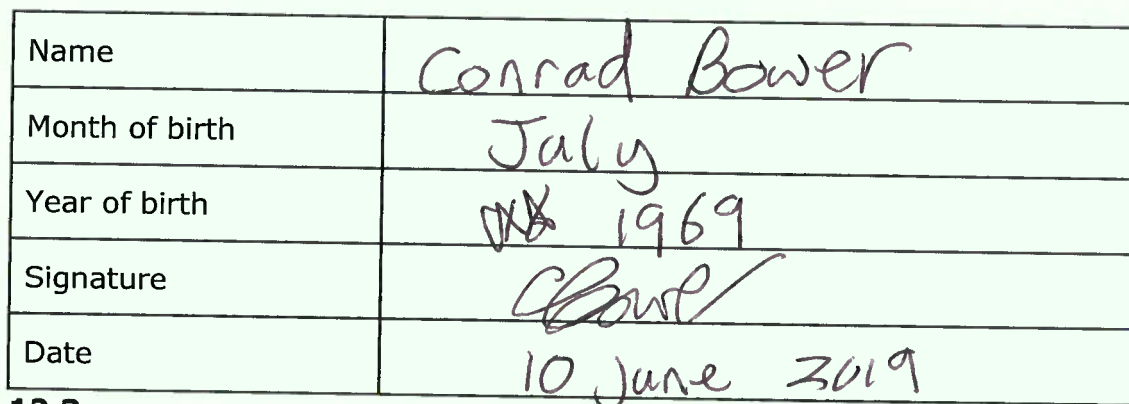 Name Conrad Bower
Month of birth July
Year of birth 1969
Signature CBower
Date 10 June 2019